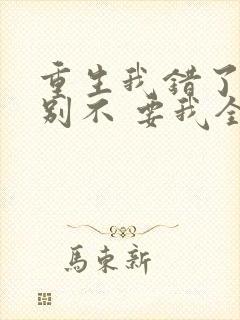 重生我错了
别不 要我全
馬東新